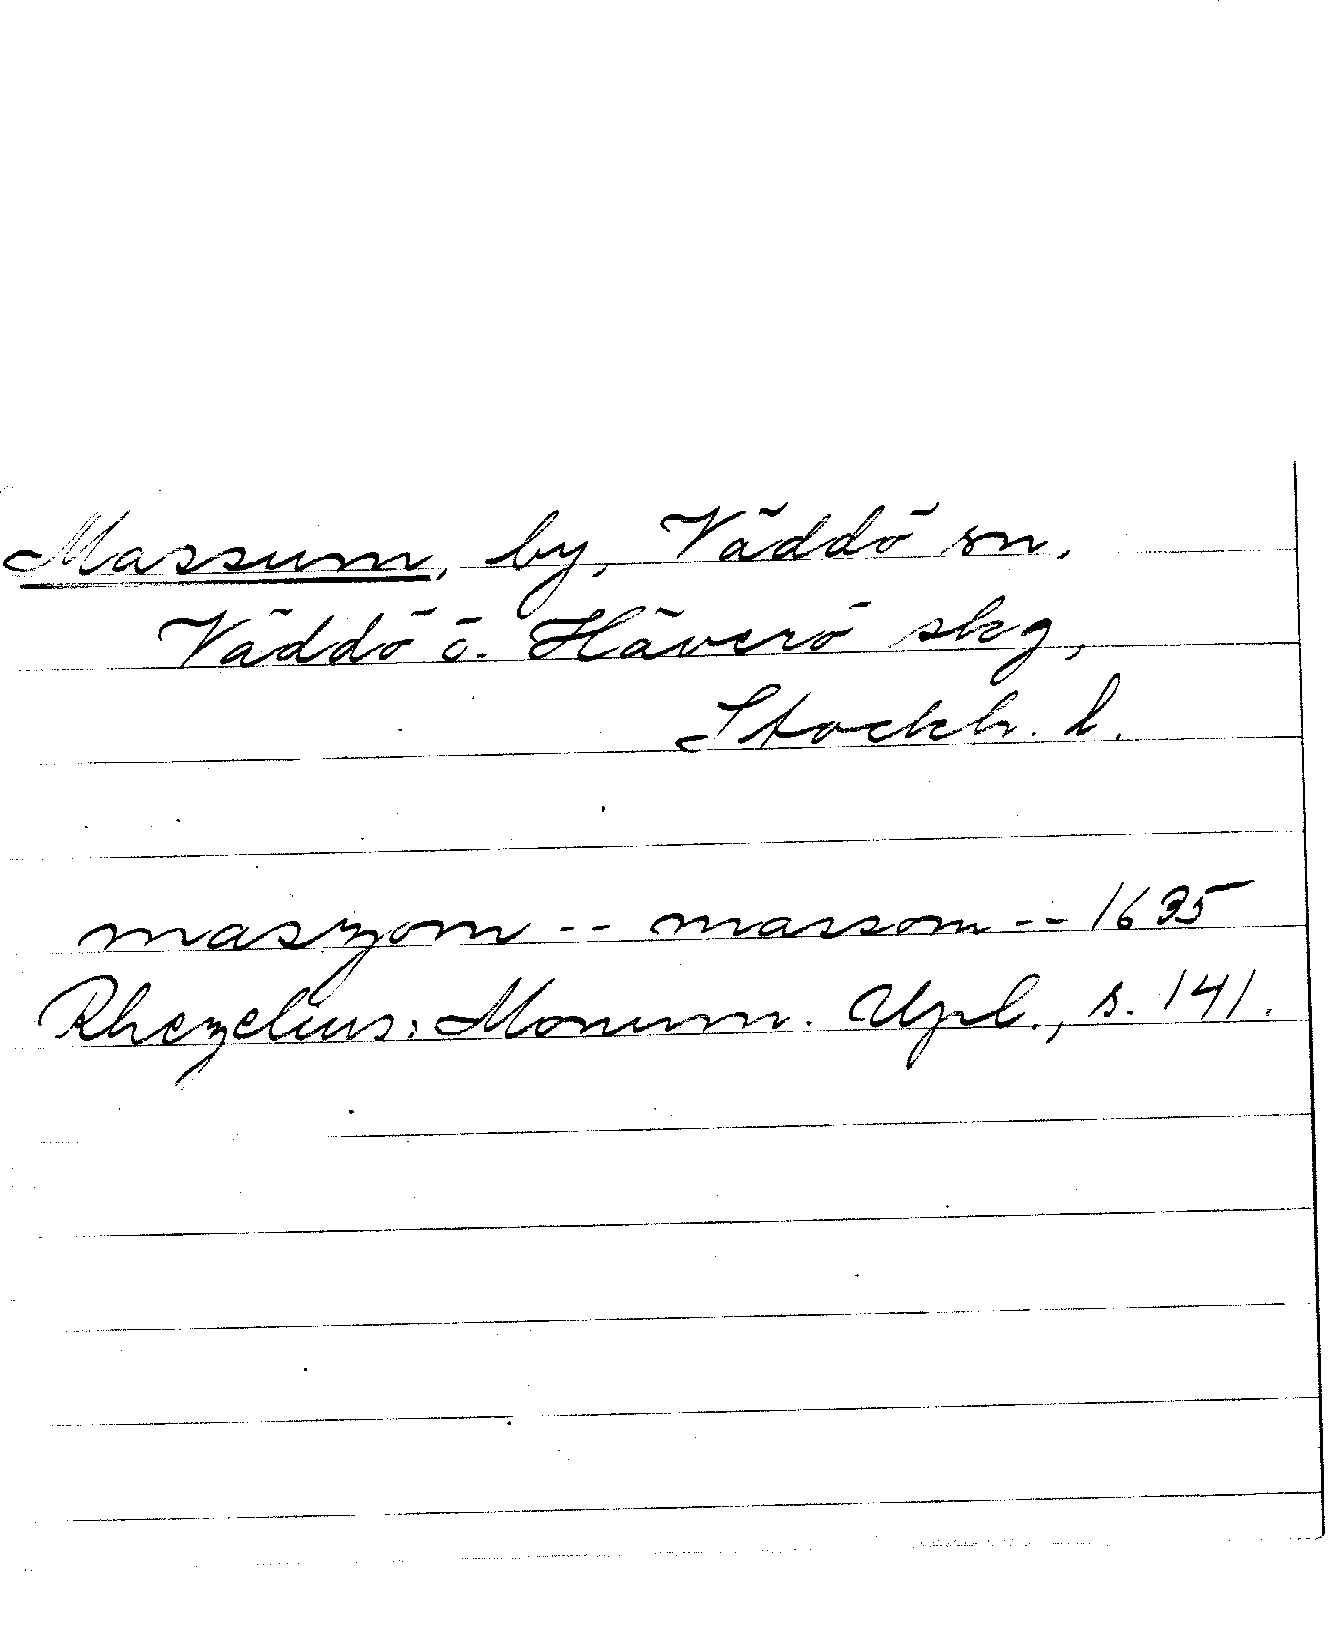 Massum, by, Väddö sn,
Väddö o. Häverö skg,
Stockh. l.
maszom -- massom -- 1635
Rhezelius: Monum. Upl., s. 141.